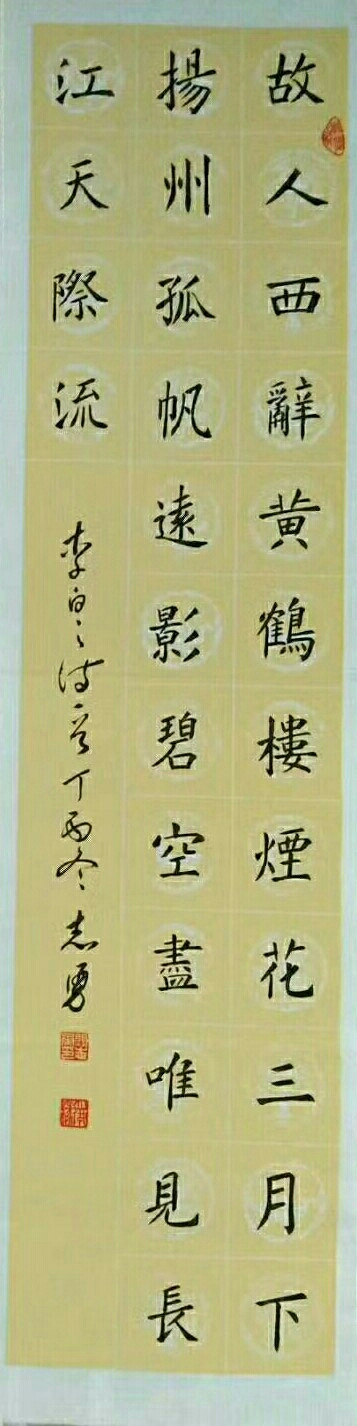 故人西辭黄鶴樓煙花三月下
揚州孤帆遠影碧空盡唯見長
江天際流
李白之詩一首丁酉冬志勇